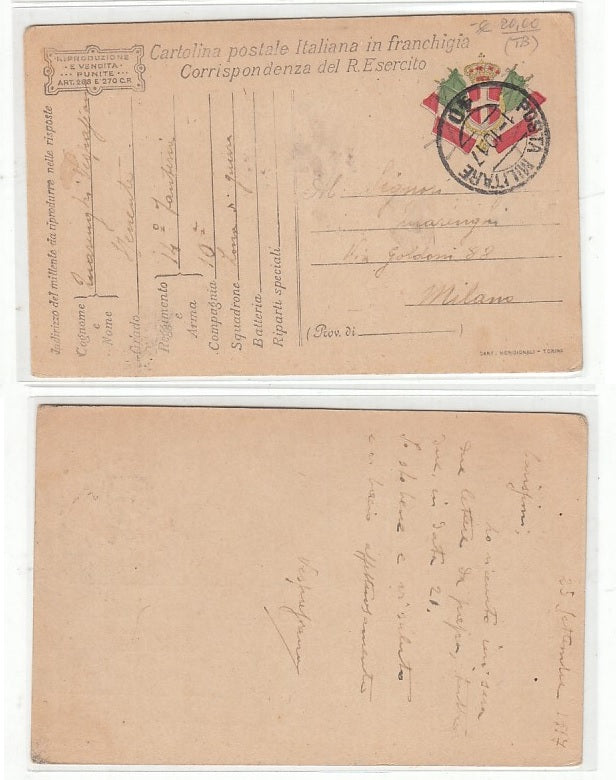 20,00
(TB)
RIPRODUZIONE
E VENDITA
PUNITE
ART. 268 E 270 C.P.
Cartolina postale Italiana in franchigia
Corrispondenza del R. Esercito
POSTA MILITARE
1-10-17
Indirizzo del mittente da riprodurre nelle risposte
Cognome e Nome Marenghi
Grado Tenente
Reggimento e Arma 14° Fanteria
Compagnia 19a
Squadrone Zona di guerra
Batteria
Riparti speciali
Al Signor
Marenghi
Via Goldoni 88
Milano
(Prov. di )
CART. MERIDIONALI - TORINO
25 Settembre 1917
Carissimi,
ho ricevuto
due lettere da
due, in data 21.
Io sto bene e vi saluto
e vi bacio affettuosamente